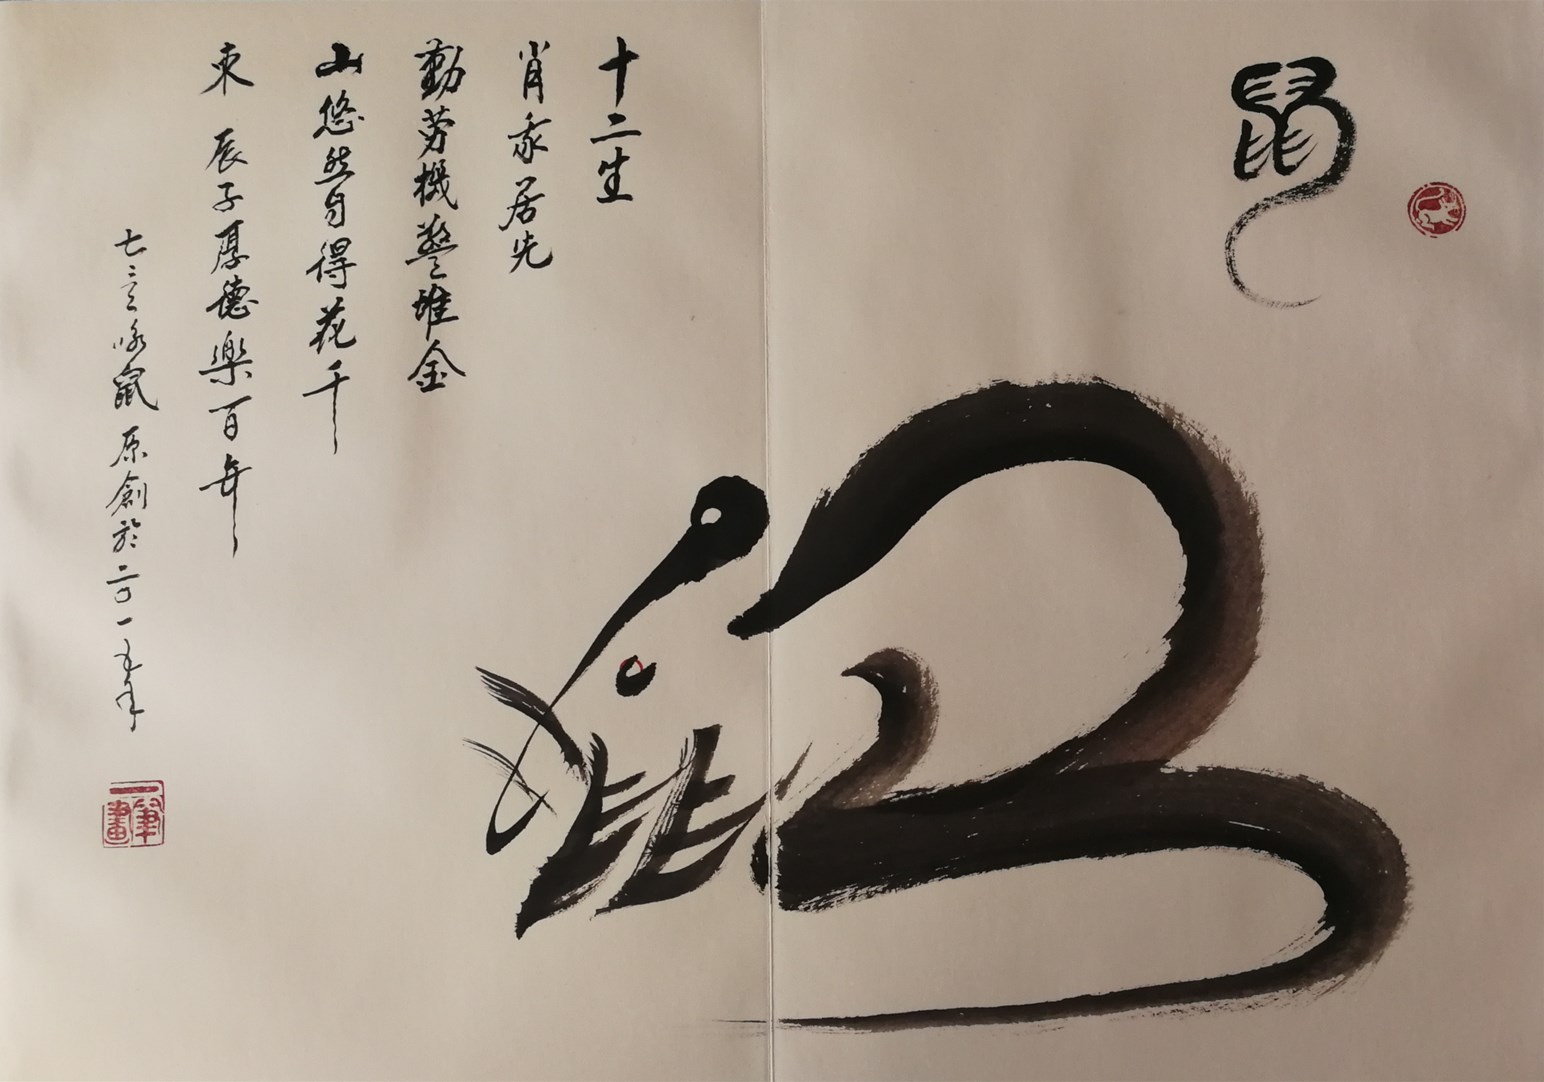 鼠
十二生
肖我居先
勤劳機警堆金
山悠然自得花千
束 辰子厚德樂百年
七言咏鼠 原創於二〇一五年
一筆畫